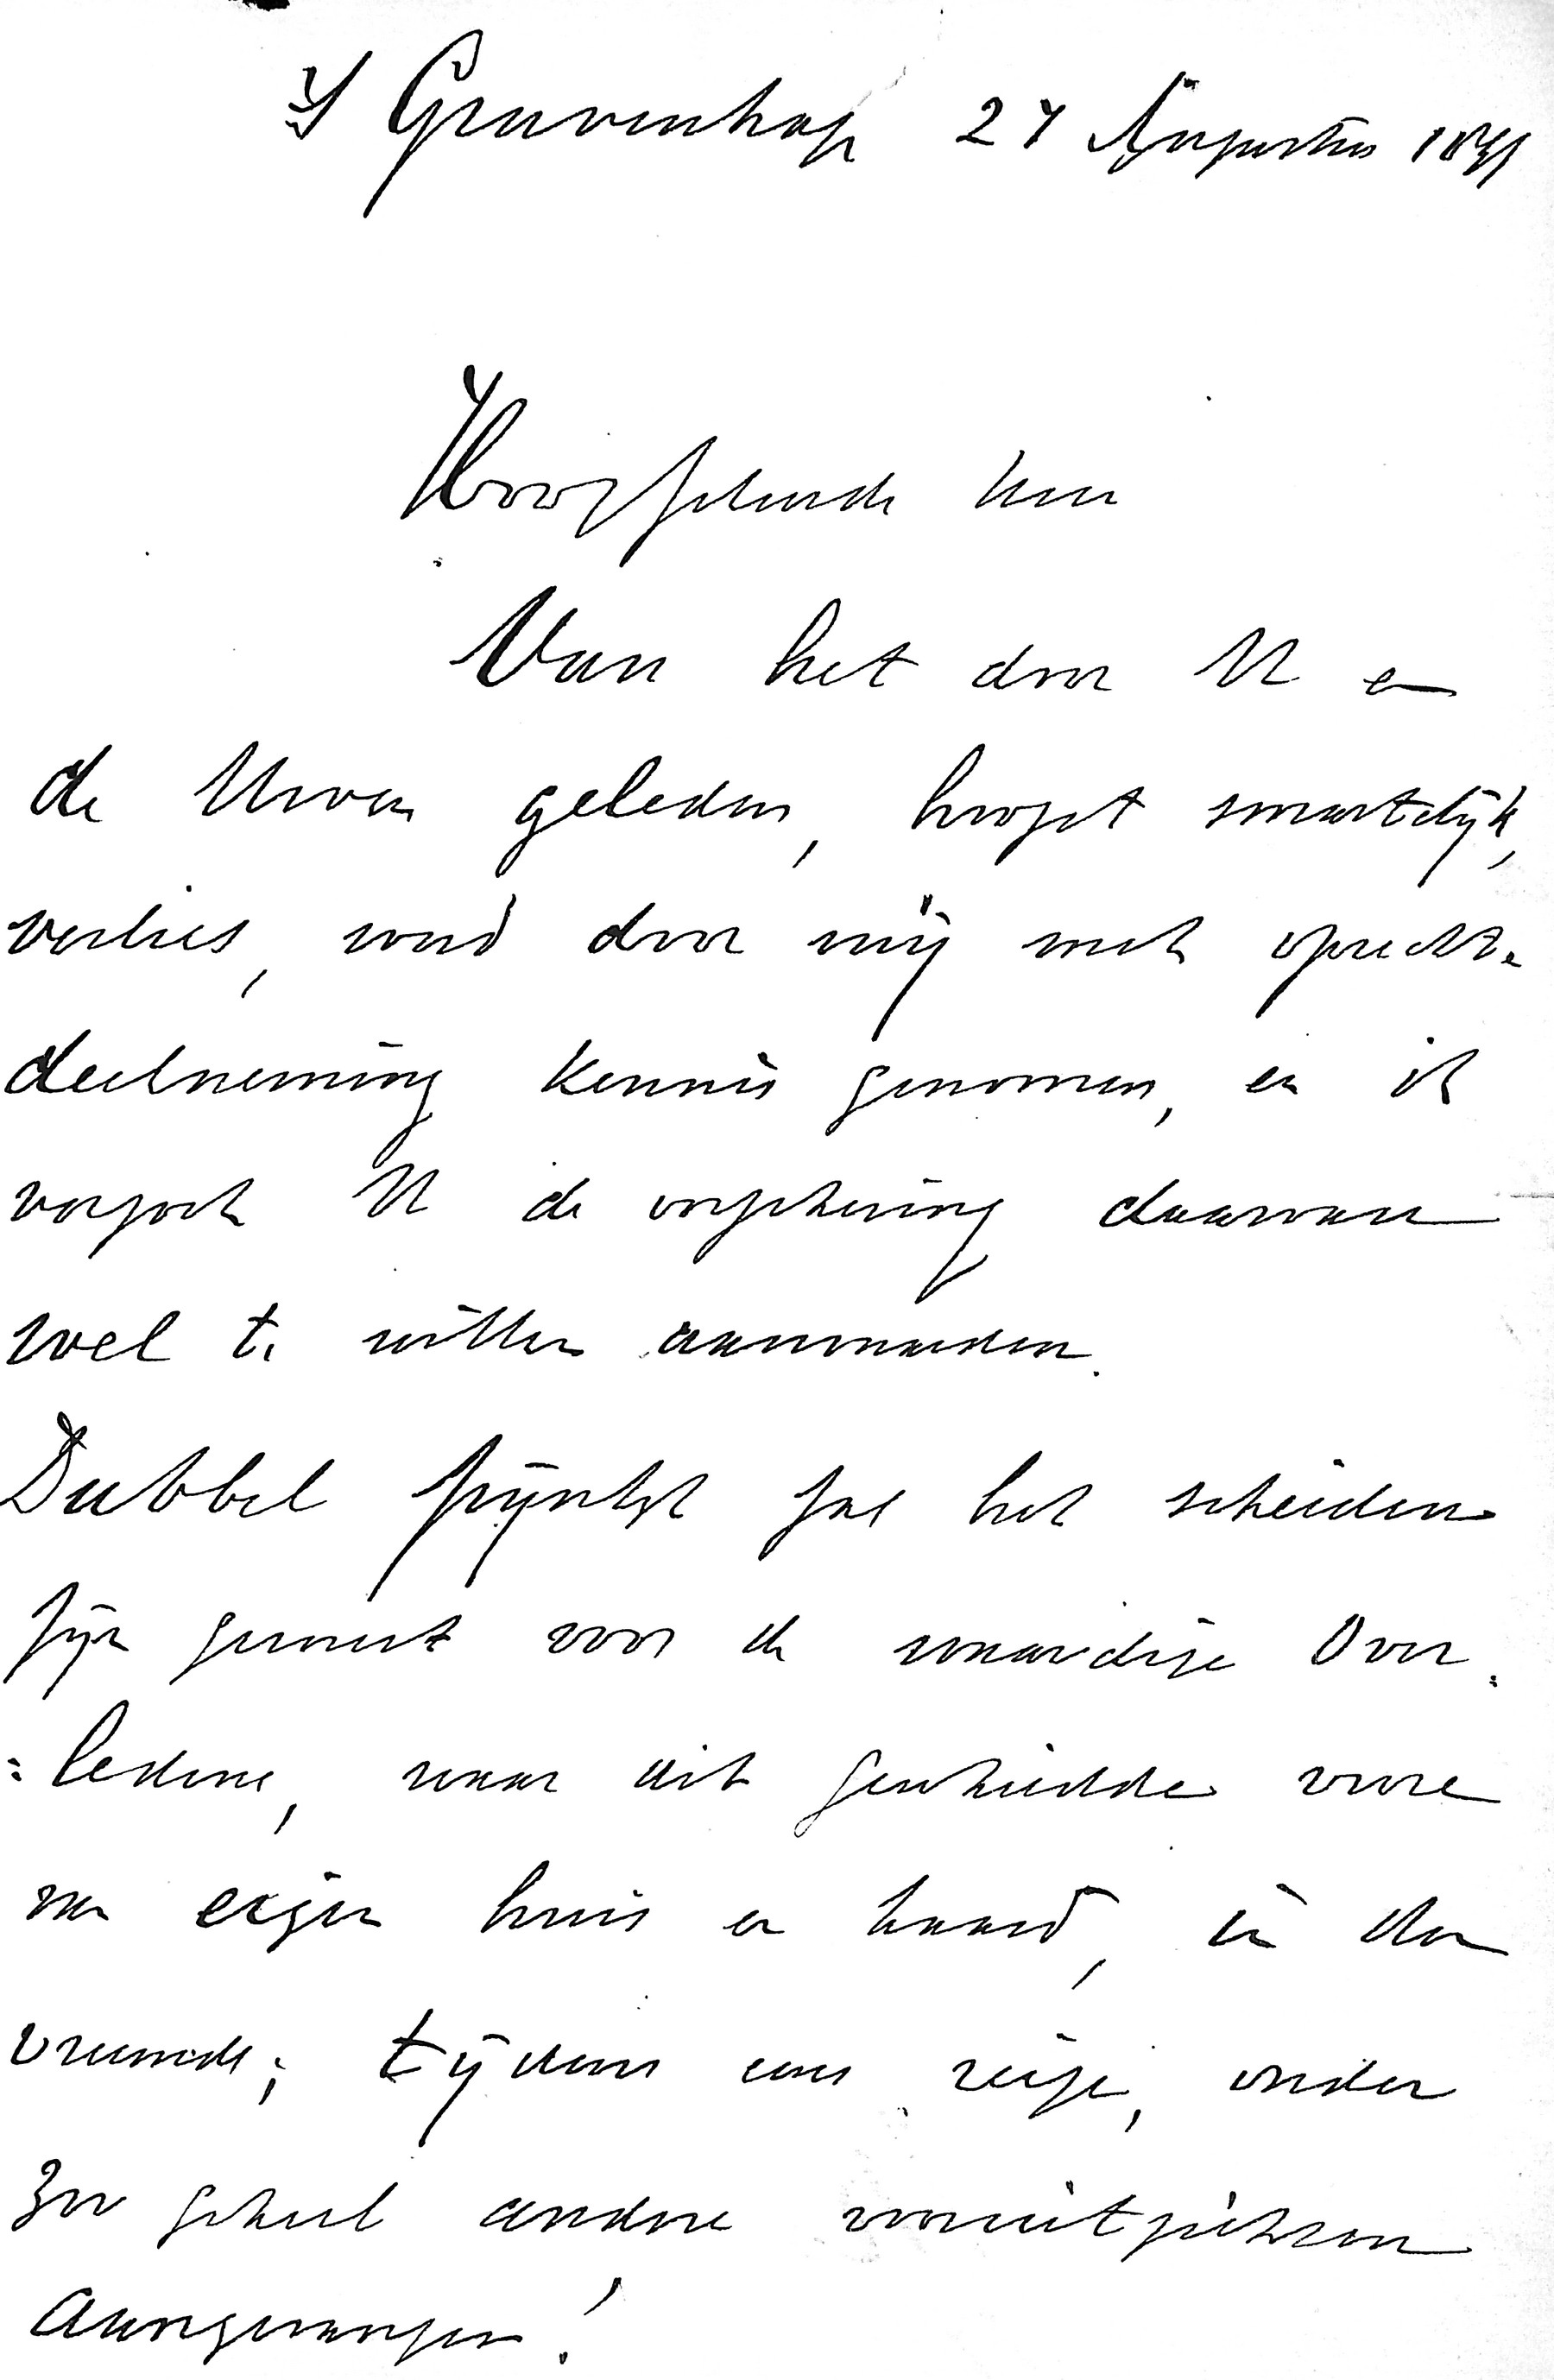 's Gravenhage 27 Augustus
Hooggeleerde Heer
Van het door U en
de Uwen geleden, hoogst smartelijk,
verlies, werd door mij met oprechte
deelneming kennis genomen, en ik
verzoek U de verzekering daarvan
wel te willen aanvaarden.
Dubbel pijnlijk zal het scheiden
zijn geweest voor de waardige Over=
=ledene, waar dit geschiedde verre
van eigen huis en haard, in den
vreemde; tijdens eene reize, onder
zoo geheel andere vooruitzichten
aangevangen!